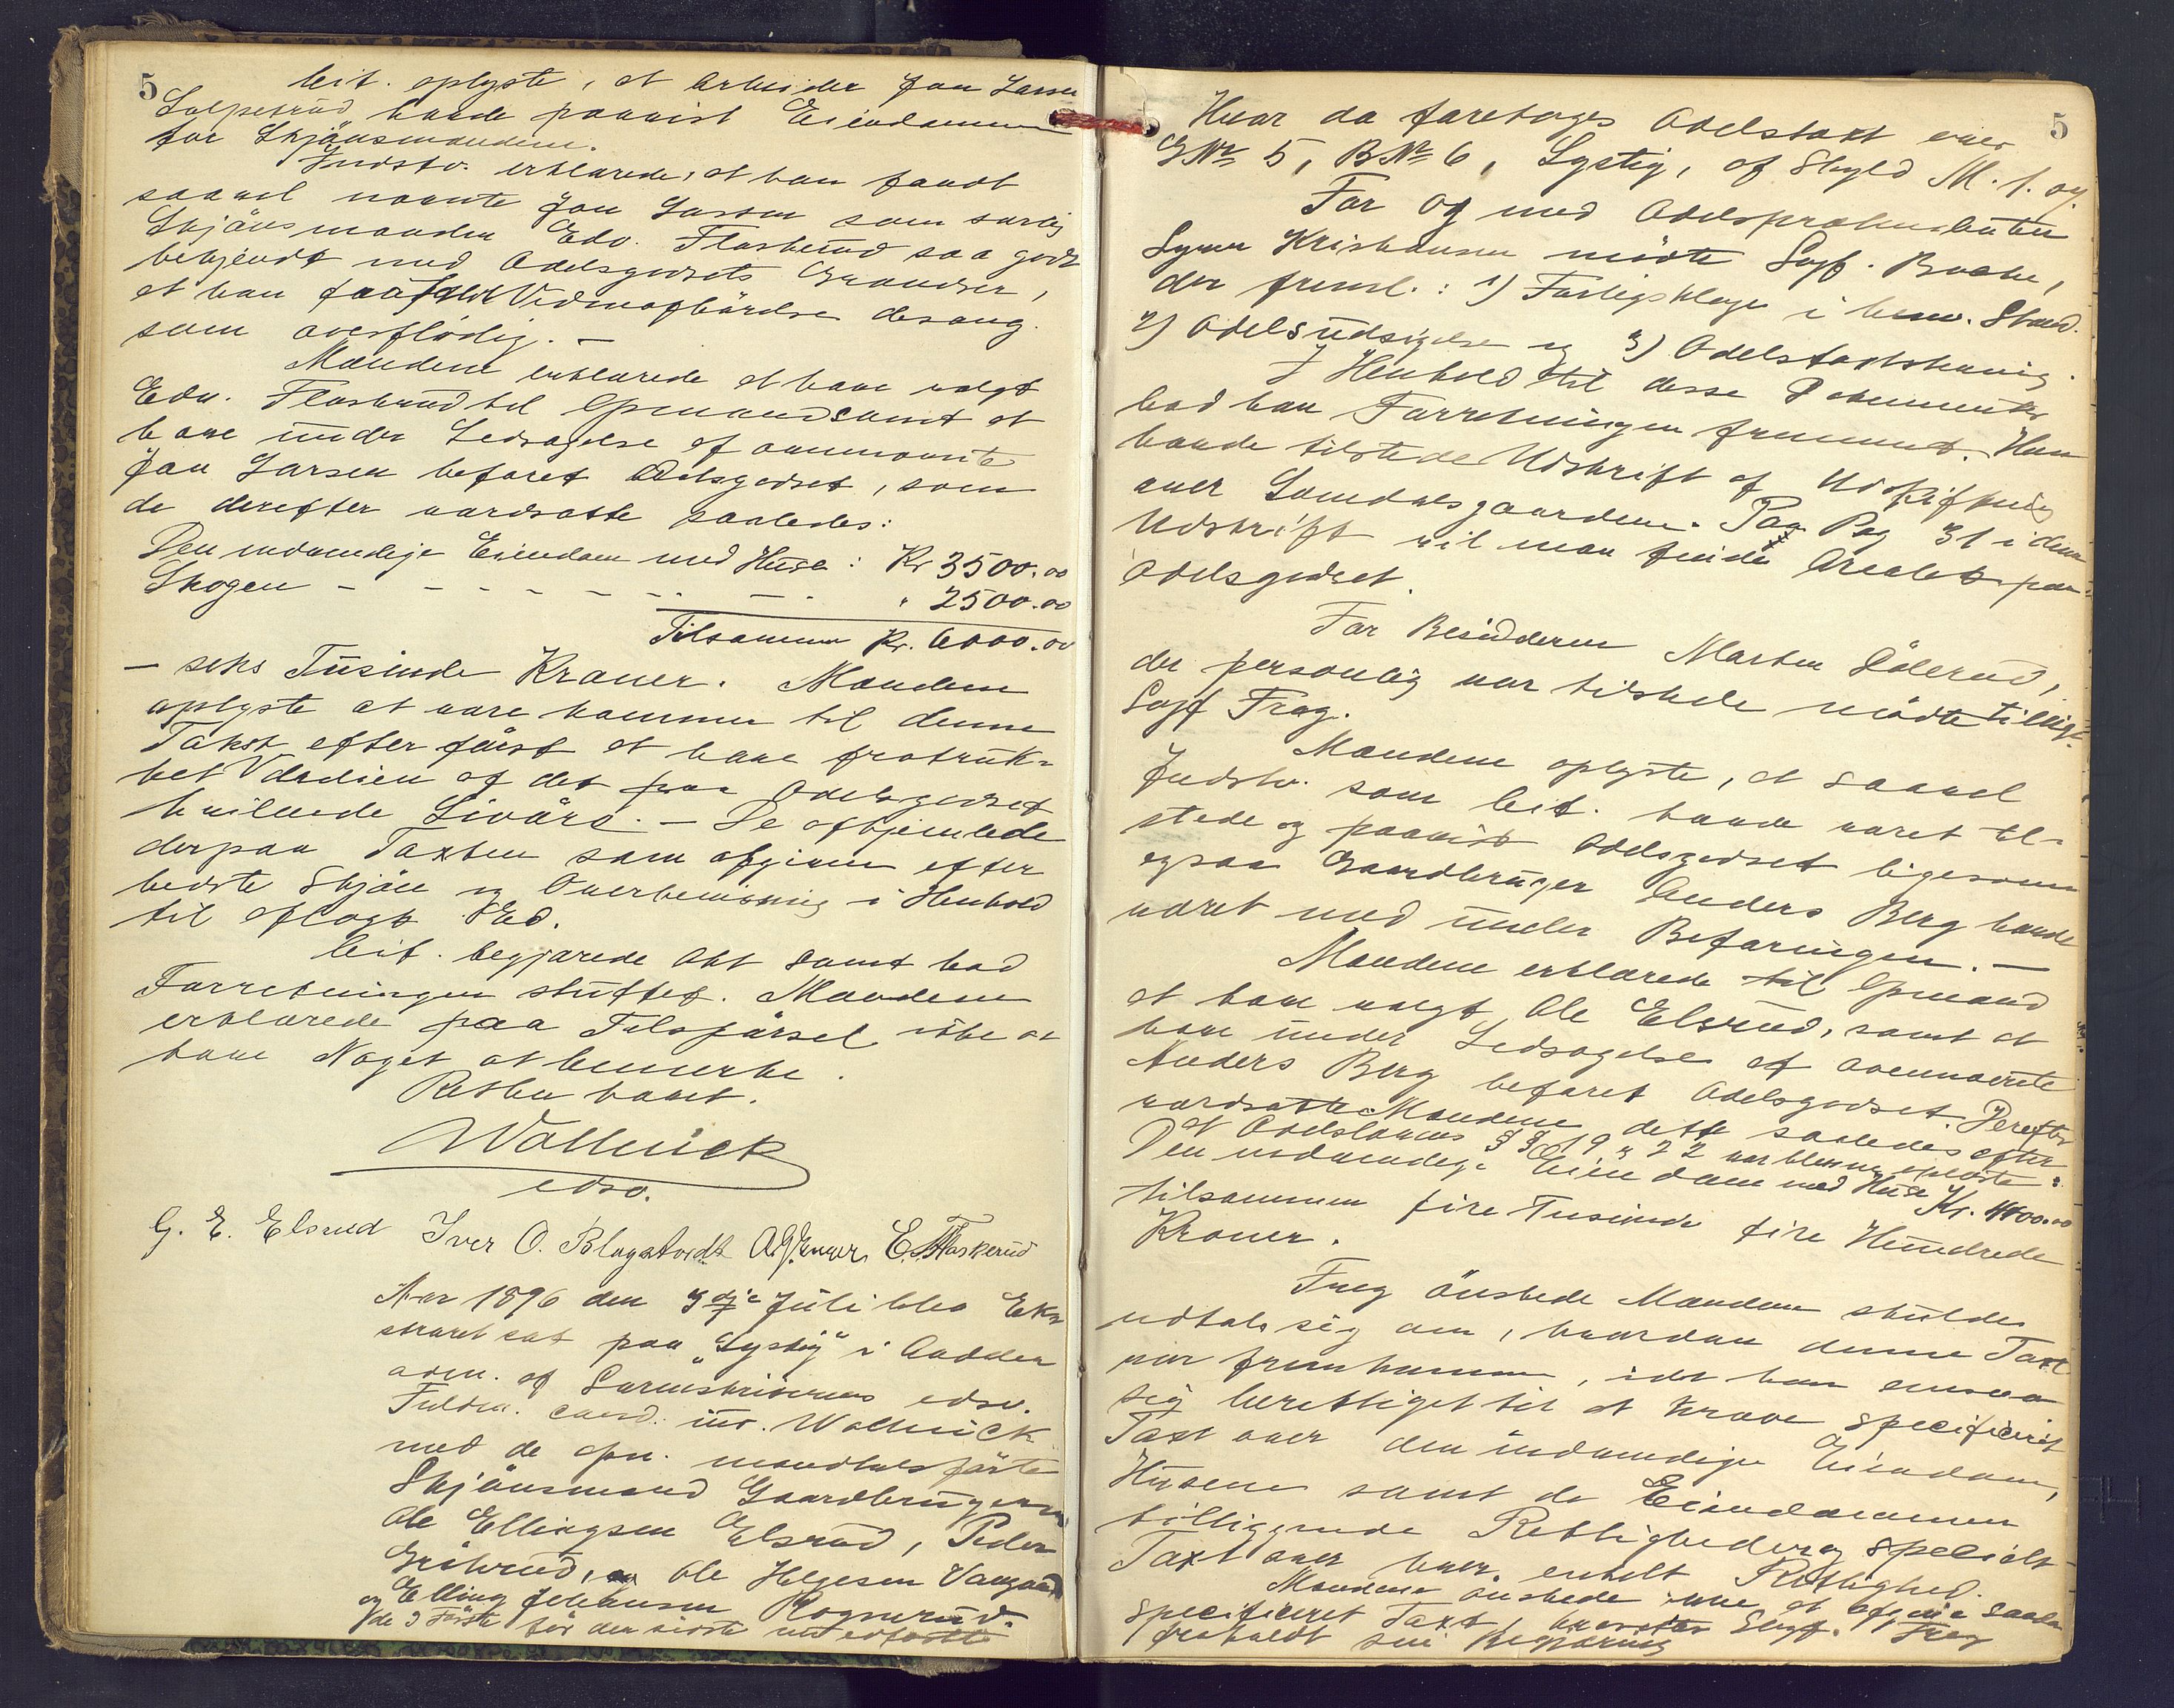 5
Cit. oplyste, at Arbeider Jan Larsen
Solpetrud havde paavist Eiendommen
for Skjønsmændene.
Indstv. erklærede, at han fandt
saavel nævnte Jan Larsen som særlig
Skjønsmanden Edv. Flaskerud saa godt
bekjendt med Odelsgodsets Grændser,
at han Vidneafhørelse desang.
som overflødig. —
Mændene erklærede at have valgt
Edv. Flaskerud til Opmand samt at
have under Ledsagelse af ovennævnte
Jan Larsen befaret Odelsgodset, som
de derefter værdsatte saaledes:
Den indvendige Eiendom med Huse: Kr 3500.00
Skogen - - - - - - - - " 2500.00
Tilsammen Kr. 6000.00
— seks Tusinde Kroner. Mændene
oplyste at være kommen til denne
Takst efter først at have fratruk-
ket Værdien af det paa Odelsgodset
hvilende Livøre. — De afhjemlede
derpaa Taxten som afgiven efter
bedste Skjøn og Overbevisning i Henhold
til aflagt Ed.
Cit. begjærede Akt samt bad
Forretningen sluttet. Mændene
erklærede paa Tilspørsel ikke at
have Noget at bemerke.
Retten hævet.
Wollnick
edsv.
G. E. Elsrud Iver O. Blagstvedt E. Flaskerud
Aar 1896 den 3die Juli blev Eks-
straret sat paa "Lystig" i Aadalen
adm. af Sorenskriverens edsv.
Fuldm. cand. jur. Wollnick
med de opn. mandtalsførte
Skjønsmænd Gaardbrugerne
Ole Ellingsen Elsrud, Peder
Ole Helgesen
og Elling Johansen Rognerud.
de 3 Første før den sidste nu edfæstet
5
Hvor da foretoges Odelstaxt over
GNr 5, BNr 6, Lystig, af Skyld M. 1.
For og med Odelsprætendenten
Syver Kristiansen mødte Sagf. Bache,
der freml.: 1) Forligsklage i benv. Stand.
2) Odelsudsigelse og 3) Odelstaxtstevning.
I Henhold til disse Dokumenter
bad han Forretningen fremmet. Han
havde tilstede Udskrift af Udskiftning
over Somdalsgaardene. Paa Pag 31 i denne
Udskrift vil man finde Arealet paa
Odelsgodset.
For Besidderen Marten Dølerud,
der personlig var tilstede mødte tillige
Sagf Frog.
Mændene oplyste, at saavel
Indstv. som Cit. havde været til-
stede og paavist Odelsgodset ligesom
ogsaa Gaardbruger Anders Berg havde
været med under Befaringen. —
Mændene erklærede til Opmand
at have valgt Ole Elsrud, samt at
have under Ledsagelse af ovennævnte
Anders Berg befaret Odelsgodset. Derefter
værdsatte Mændene dette saaledes efter
at Odelslovens §§ 19 og 22 var bleven oplæste:
Den indvendige Eiendom med Huse Kr. 4400.00
tilsammen fire Tusinde fire Hundrede
Kroner.
Frog ønskede Mændene skulde
udtale sig om, hvordan denne Taxt
var fremkommen, idet han ansaa
sig berettiget til at kræve specificeret
Taxt over den indvendige Eiendom,
Husene samt de Eiendommen
tilliggende Rettigheder og specielt
Taxt over hver enkelt Rettighed.
Mændene ønskede ikke at afgive saadan
specificeret Taxt, hvorefter Sagf. Frog
frafaldt sin Begjæring